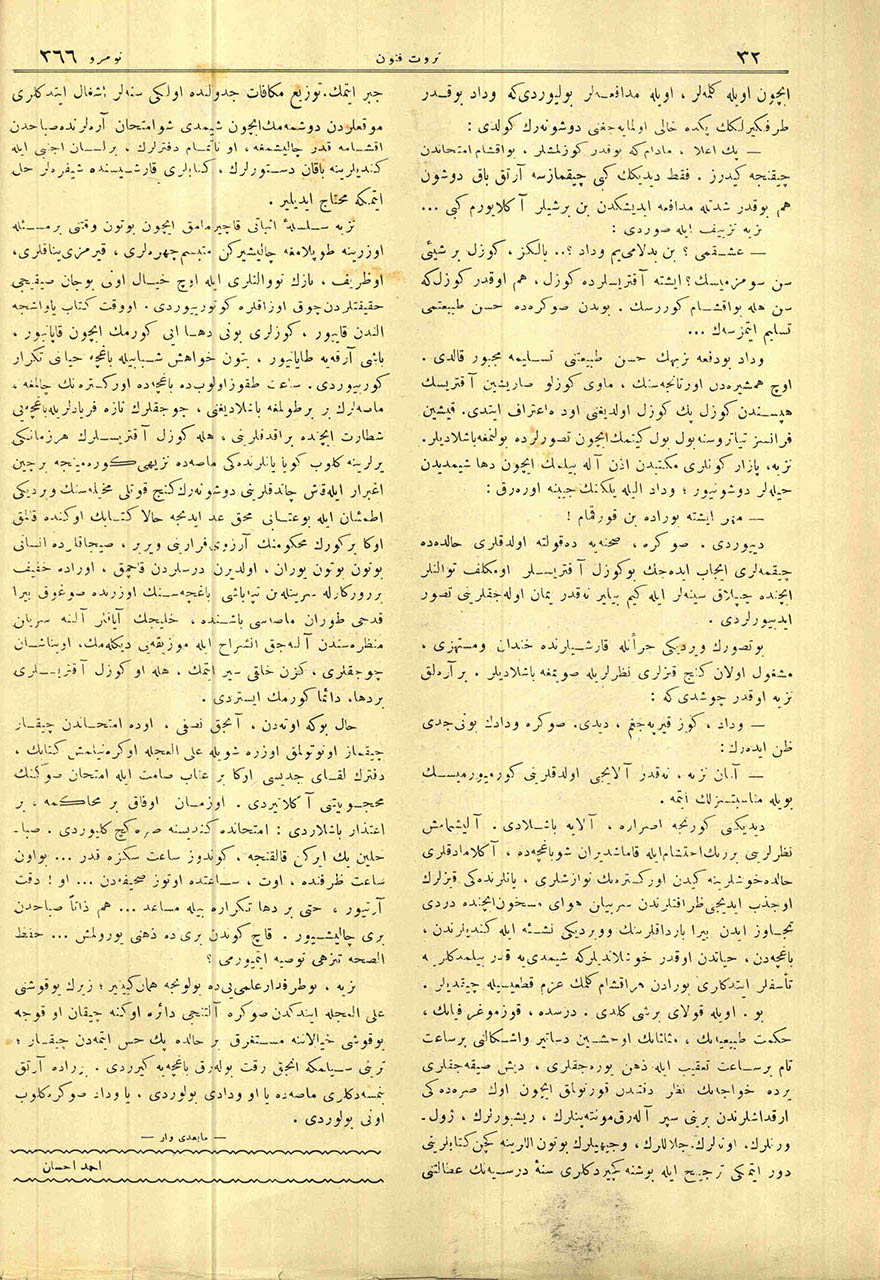 ٣٢
ثروت فنون
نومرو ٣٦٦
ایچون اویله کله‌لر ، اویله مدافعه‌لر بولیوردی‌که وداد بوقدر
طرفکیرلکک پکده خالی اولمایه‌جغنی دوشونه‌رك کولدی :
— پك اعلا ، مادام‌که بوقدر کوزلمشلر ، بواقشام امتحاندن
چیقنجه کیدرز . فقط دیدیکك کبی چیقمازسه آرتق باق دوشون
هم بوقدر شدتله مدافعه ایدیشکدن بن برشیلر آکلایورم کبی ...
نزیه تزییف ایله صوردی :
— عشقمی ؟ بن بدلامی‌یم وداد ؟.. یالکز ، کوزل بر شیئی
سن سومزمیسك ؟ ایشته آقتریسلرده کوزل ، هم اوقدر کوزل‌که
سن هله بواقشام کوررسك . بوندن صوکره‌ده حسن طبیعتمی
تسلیم ایتمزسه‌ك ...
وداد بودفعه نزیهك حسن طبیعتنی تسلیمه مجبور قالدی .
اوچ همشیره‌دن اورتانجه‌سنك ، ماوی کوزلو صاریشین آقتریسك
هپسندن کوزل پك کوزل اولدیغنی اوده اعتراف ایتدی . قیشین
فرانسز تیاتروسنه بول بول کیتمك ایچون تصورلرده بولنمغه باشلادیلر.
نزیه، پازار کونلری مکتبدن اذن آله بیلمك ایچون دها شیمدیدن
حیله‌لر دوشونیور ؛ وداد الیله یلکنك جیبنه اوره‌رق :
— منهر ایشته بوراده بن قورقمام !
دییوردی . صوکره ، صحنه‌یه ده‌قولته اولدقلری حالده‌ده
چیقمه‌لری ایجاب ایده‌جك بوکوزل آقتریسلر اومکلف توالتلر
ایچنده چیپلاق سینه‌لر ایله کیم بیلیر نه‌قدر یمان اوله‌جقلرینی تصور
ایدییورلردی .
بوتصورك ویردیکی جرأتله قارشیلرنده خندان ومستهزی ،
مشغول اولان کنج قیزلری نظرلریله صویمغه باشلادیلر . برآره‌لق
نزیه اوقدر جوشدی‌که :
— وداد ، کوز قیرپه‌جغم ، دیدی. صوکره ودادك بونی جدی
ظن ایده‌رك :
— آمان نزیه ، نه‌قدر آلایجی اولدقلرینی کورمیورمیسك
بویله مناسبتسزلك ایتمه .
دیدیکنی کورنجه اصراره ، آلایه باشلادی . آلیشمامش
نظرلرینی بررنك احتشام‌ایله قاماشدیران شوباغچه‌ده ، آکلامادقلری
حالده‌خوشلرینه کیدن اورکستره‌نك نوازشلری ، یانلرنده‌کی قیزلرك
اوجذب ایدیجی‌ظرافتلرندن سرپیان هوای مسخون‌ایچنده دردی
تجاوز ایدن بیرا بارداقلرینك ووریدیکی نشئه ایله کندیلرندن ،
باغچه‌دن ، حیاتدن اوقدر خوشلاندیلرکه شیمدی‌یه قدر بیلمدکلرینه
تأسفلر ایتدکلری بورادن هراقشام کلمك عزم قطعیسیله چیقدیلر .
بو . اویله قولای برشی کلدی . درسده ، قوزموغرافیانك ،
حکمت طبیعیه‌نك ، مثلثاتك اوحشین دساتیر واشکالنی برساعت
تام برساعت تعقیب ایله ذهن یوره‌جقلری ، دیش صیقه‌جقلری
یرده خواجه‌نك نظر دقتندن قورتولمق ایچون اوك صره‌ده‌کی
ارقداشلرندن برینی سپر آله‌رق‌مونته‌پنلرك ، ریشبورلرك ، ژول-
ورنلرك. اونلرك.جلاللرك، وجیهیلرك بوتون اللرینه کچن‌کتابلرینی
دور ایتمکی ترجیح ایله بوشنه کچیردکلری سنهٔ درسیه‌نك عطالتنی
جبر ایتمك. توزیع مکافات جدولنده اولکی سنه‌لر اشغال ایتدکلری
موقعلردن دوشمه‌مك‌ایچون شیمدی شوامتحان آره‌لرنده‌صباحدن
اقشامه قدر چالیشمغه ، او ناتمام دفترلرك ، برلسان اجنبی ایله
کندیلرینه باقان دستورلرك ، کتابلری قارشیسنده شیفره‌لر حل
ایتمکه محتاج ایدیلر .
نزیه سلسلهٔ اثباتی قاچیرمامق ایچون بوتون وقتنی برمسئله
اوزرینه طوپلامغه چالیشیرکن متبسم چهره‌لری ، قیرمزی‌یناقلری،
اوظریف ، نازك تووالتلری ایله اوچ خیال اونی بوجان صیقیجی
حقیقتلردن چوق اوزاقلره کوتورییوردی . اووقت کتاب یاواشجه
الندن قاییور ، کوزلری بونی دها ایی کورمك ایچون قاپانیور ،
باشی آرقه‌یه طایانیور ، بتون خواهش شبابیله باغچه حیاتی تکرار
کورییوردی . ساعت طقوزاولوب‌ده باغچه‌ده اورکستره‌نك چالمغه ،
ماصه‌لرك بر برطولمغه باشلادیغنی ، چوجقلرك تازه فریادلریله‌باغچه‌یی
شطارت ایچنده براقدقلرینی ، هله کوزل آقتریسلرك هرزمانکی
یرلرینه کلوب کویا یانلرنده‌کی ماصه‌ده نزیهی‌کوره‌مینجه برچین
اغبرار ایله‌قاش چاتدقلرینی دوشونه‌رك‌کنج قوتلی مخیله‌سنك ویردیکی
اطمئنان ایله بوعتابی محق عد ایدنجه حالا کتابك اوکنده قالمق
اوکا برکورك محکومنك آرزوی‌فرارینی ویریر ، صیجاقلرده انسانی
بوتون بوتون یوران ، اولدیرن درسلردن قاچمق ، اوراده خفیف
برروزکارله سرینله‌ین تپه‌باشی باغچه‌سنك اوزرنده صوغوق بیرا
قدحی طوران ماصه‌سی باشنده ، خلیجك آیاقلر آلتنه سریلن
منظره‌سندن آله‌جق انشراح ایله موزیقه‌یی دیکله‌مك، اویناشان
چوجقلری ، کزن خلقی سیر ایتمك . هله او کوزل آقتریسلری
بردها، دائما کورمك ایستردی .
حال بوکه اوته‌دن ، آنجق نصفی ، اوده امتحاندن چیقار
چیقماز اونوتولمق اوزره شویله علی العجله اوکره‌نیلمش کتابك ،
دفترك لقای جدیسی اوکا بر عتاب صامت ایله امتحان صوکنك
محجوبیتنی آکلاتیردی . اوزمان اوفاق بر محاکمه ، بر
اعتذار باشلاردی : امتحانده کندیسنه صره‌کچ کلیوردی . صبا-
حلین پك ایرکن قالقنجه ، کوندوز ساعت سکزه قدر ... بواون
ساعت ظرفنده ، اوت ، ساعتده اوتوز صحیفه‌دن ... او ! دقت
آرتیور ، حتی بر دها تکراره بیله مساعد ... هم ذاتاً صباحدن
بری چالیشیور . قاچ کوندن بری‌ده ذهنی یورولمش ... حفظ
الصحه تنزهی توصیه ایتمیورمی ؟
نزیه ، بوطرفدار علمی‌یی‌ده بولونجه همان‌کیینیر ؛ زیرك یوقوشنی
علی العجله ایندکدن صوکره آلتنجی دائره اوکنه چیقان او قوجه
یوقوشی خیالاتنه مستغرق بر حالده پك حس ایتمه‌دن چیقار ؛
ترینی سیلمکه آنجق رقت بوله‌رق باغچه‌یه کیرردی . بوراده آرتق
بنمسه‌دکلری ماصه‌ده یا او ودادی بولوردی ، یا وداد صوکره‌کلوب
اونی بولوردی .
— مابعدی وار —
احمد احسان